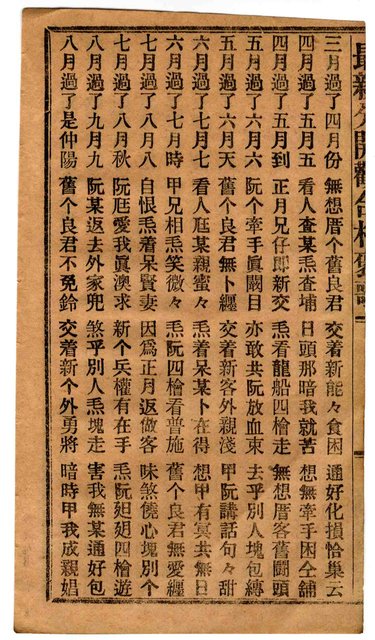 最新分開勸合相褒歌
三月過了四月份　無想厝个舊良君　交着新能々食困　通好化損恰巢云
四月過了五月五　看人查某焏查埔　日頭那暗我就苦　想無牽手困仝舖
四月過了五月到　正月兄仔即新交　焏看龍船四檜走　無想厝客舊鬪頭
五月過了六月六　阮个牽手眞闘目　亦敢共阮放血束　去乎別人塊包縛
五月過了六月天　舊个良君無卜纏　交着新客外親淺　甲阮講話句々甜
六月過了七月七　看人尫某親蜜々　焏着呆某卜在得　想甲有冥共無日
六月過了七月時　甲兄相焏笑微々　焏阮四檜看普施　舊个良君無愛纏
七月過了八月八　自恨焏着呆賢妻　因爲正月返做客　味煞僥心塊別个
七月過了八月秋　阮尫愛我眞澳求　新个兵權有在手　焏阮廻廻四檜遊
八月過了九月九　阮某返去外家兜　煞乎別人焏塊走　害我無某通好包
八月過了是仲陽　舊个良君不免鈴　交着新个外勇將　暗時甲我成親娼